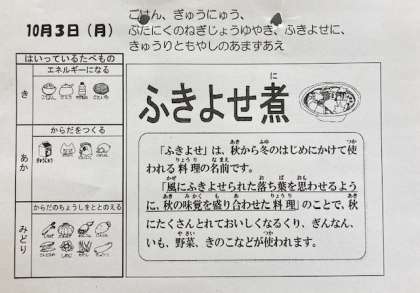 10月3日（月）
ごはん、ぎゅうにゅう、
ぶたにくのねぎじょうゆやき、ふきよせに、
きゅうりともやしのあまずあえ
はいっているたべもの
エネルギーになる
き
からだをつくる
あか
からだのちょうしをととのえる
みどり
ふきよせ煮
に
「ふきよせ」は、秋から冬のはじめにかけて使
われる料理の名前です。
「風にふきよせられた落ち葉を思わせるよう
に、秋の味覚を盛り合わせた料理」のことで、秋
にたくさんとれておいしくなるくり、ぎんなん、
いも、野菜、きのこなどが使われます。